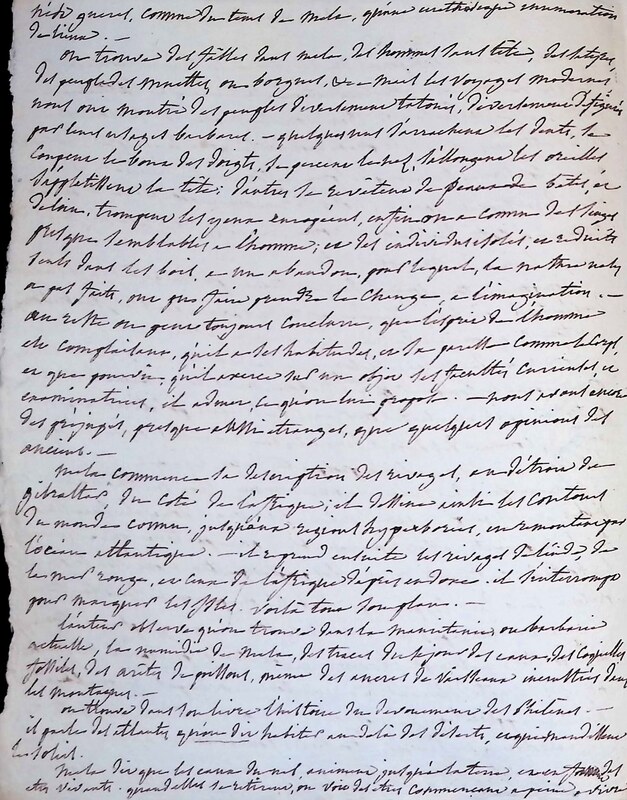 guères, comme du tems de mela, qu'une methodique enumeration
de lieux. —
on trouve des fables dans mela, des hommes sans tête, des satyres,
des peuples des muettes, ou borgnes, &a mais les voyages modernes
nous ont montré des peuples diversement tatoués, diversement défigurés
par leurs usages barbares. — quelques uns s'arrachent les dents, se
coupent le bout des doigts, se percent le nez, s'allongent les oreilles
s'applatissent la tête; d'autres se revêtent de peaux de bêtes, et
de loin, trompent les yeux enfin on a connu des singes
presque semblables a l'homme; et des individus isolés, et reduits
seuls dans les bois, a un abandon, pour lequel, la nature ne les
a pas faits, ont pu faire prendre le change, a l'imagination. —
au reste on peut toujours conclure, que l'esprit de l'homme
est complaisant, qu'il a ses habitudes, et sa paresse comme le corps,
et que pourvu, qu'il exerce sur un objet ses facultés curieuses, et
examinatrices, il admet, ce qu'on lui propose. — nous avons encore
des préjugés, presque aussi étranges, que quelques opinions des
anciens. —
mela commence sa description des rivages, au détroit de
gibraltar du coté de l'affrique; il dessine ainsi les contours
du monde connu, jusqu'aux regions hyperborées, en remontant par
l'océan atlantique. — il reprend ensuite les rivages de l'inde, de
la mer rouge, et ceux de l'affrique il s'interrompt
pour marquer les isles. voilà tout son plan. —
l'auteur observe qu'on trouve dans la mauritanie, ou barbarie
actuelle, la numidie de mela, des traces du séjour des eaux, des coquilles
fossiles, des arêtes de poissons, même des ancres de vaisseaux incrustées dans
les montagnes. —
on trouve dans son livre l'histoire du devouement des Philènes. —
il parle des atlantes, qu'on dit habiter au delà des déserts, et qui maudissent
le soleil.
mela dit que les eaux du nil, animent jusqu'à la terre, et en forment des
etres vivants. quand elles se retirent, on voit des etres commencant a peine, a vivre